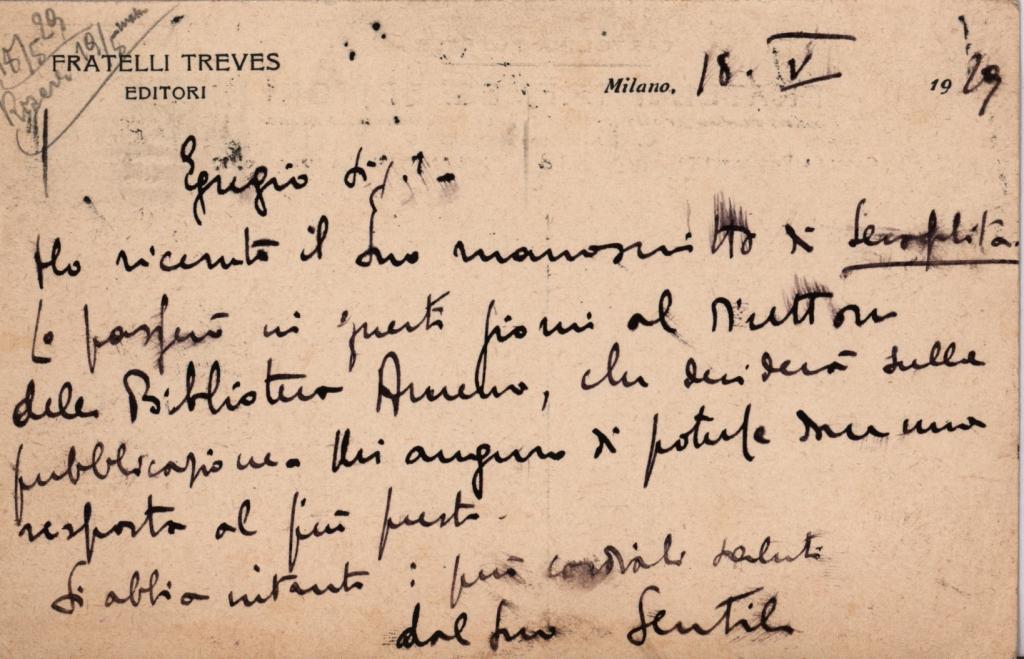 18/5 29
FRATELLI TREVES
EDITORI
Milano, 18. V 1929
Egregio Sig.r
Ho ricevuto il Suo manoscritto di
Lo passerò in questi giorni al Direttore
della Biblioteca Amena, che deciderà sulla
pubblicazione. Mi auguro di poterLe dare una
risposta al più presto.
Si abbia intanto i più cordiali saluti
dal Suo Gentile